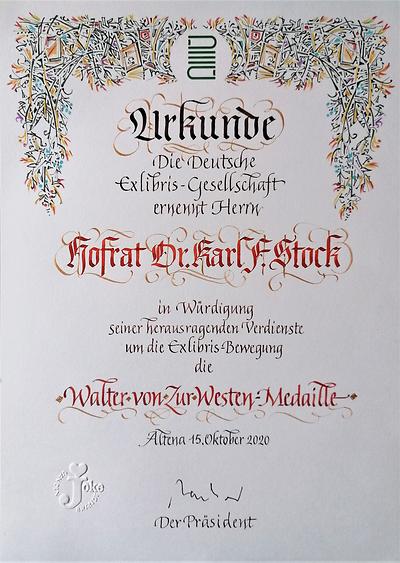 Urkunde
Die Deutsche
Exlibris-Gesellschaft
ernennt Herrn
Hofrat Dr. Karl F. Stock
in Würdigung
seiner herausragenden Verdienste
um die Exlibris-Bewegung
die
Walter-von-Zur-Westen-Medaille
Altena 15. Oktober 2020
Joke
Der Präsident